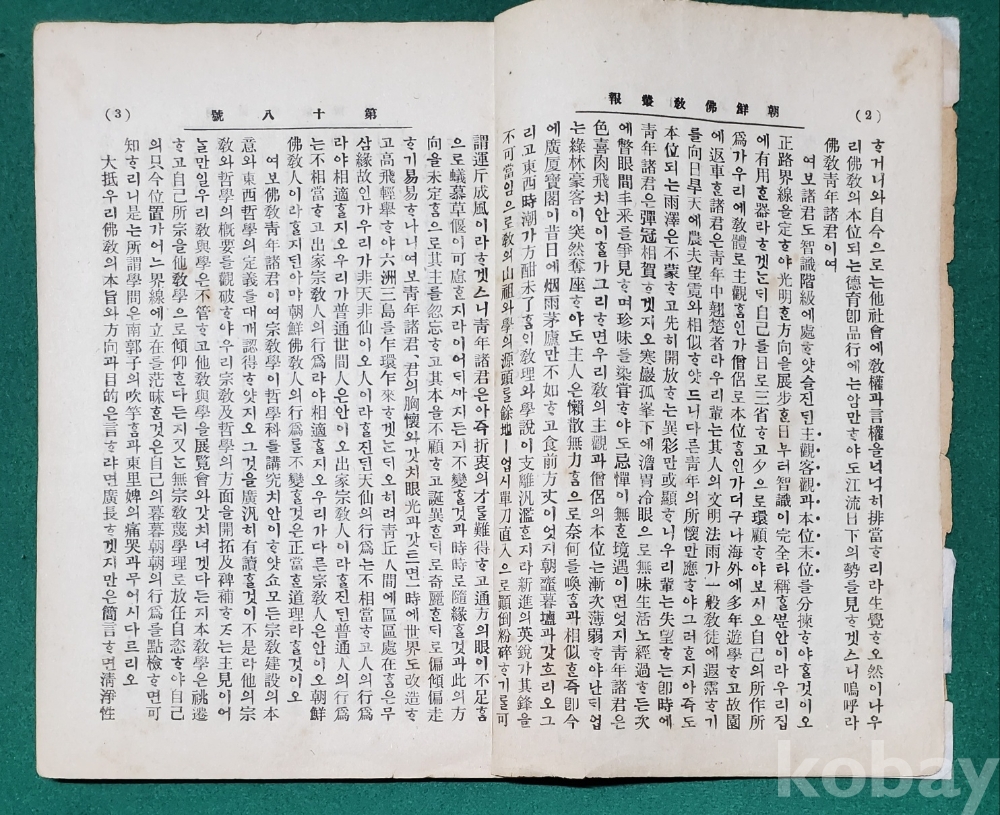 (2)
朝鮮佛敎叢報
ᄒᆞ거니와自今으로ᄂᆞᆫ他社會에敎權과言權을넉넉히排當ᄒᆞ리라生覺ᄒᆞ오然이나우
리佛敎의本位되ᄂᆞᆫ德育卽品行에ᄂᆞᆫ암만ᄒᆞ야도江流日下의勢를見ᄒᆞ겟스니嗚呼라
佛敎靑年諸君이여
여보諸君도智識階級에處ᄒᆞ얏슬진ᄃᆡᆫ主觀客觀과本位末位를分揀ᄒᆞ야ᄒᆞᆯ것이오
正路界線을定ᄒᆞ야光明ᄒᆞᆫ方向을展步ᄒᆞᆫ日부터智識이完全타稱ᄒᆞᆯᄲᅮᆫ안이라우리집
에有用ᄒᆞᆫ器라ᄒᆞ겟ᄂᆞᆫᄃᆡ自己를日로三省ᄒᆞ고夕으로環顧ᄒᆞ야보시오自己의所作所
爲가우리에敎體로主觀ᄒᆞᆷ인가僧侶로本位ᄒᆞᆷ인가더구나海外에多年遊學ᄒᆞ고故園
에返車ᄒᆞᆫ諸君은靑年中翹楚者라우리輩ᄂᆞᆫ其人의文明法雨가一般敎徒에遐霑ᄒᆞ기
를向日旱天에農夫望霓와相似ᄒᆞ얏드니다른靑年의所懷만應ᄒᆞ야그러ᄒᆞᆯ지아즉도
本位되ᄂᆞᆫ雨澤은不蒙ᄒᆞ고先히開放ᄒᆞᄂᆞᆫ異彩만或顯ᄒᆞ니우리輩ᄂᆞᆫ失望ᄒᆞᄂᆞᆫ卽時에
靑年諸君은彈冠相賀ᄒᆞ겟지오寒巖孤峯下에澹胃冷眼으로無味生活노經過ᄒᆞ든次
에瞥眼間丰采를爭見ᄒᆞ며珍味를染嘗ᄒᆞ야도忌憚이無ᄒᆞᆫ境遇이면엇지靑年諸君은
色喜肉飛치안이ᄒᆞᆯ가그리ᄒᆞ면우리敎의主觀과僧侶의本位ᄂᆞᆫ漸次薄弱ᄒᆞ야난ᄃᆡ업
ᄂᆞᆫ綠林豪客이突然奪座ᄒᆞ야도主人은懶散無力ᄒᆞᆷ으로奈何를喚ᄒᆞᆷ과相似ᄒᆞᆯ즉卽今
에廣厦寶閣이昔日에烟雨茅廬만不如ᄒᆞ고食前方丈이엇지朝虀暮壚과갓흐리오그
리고東西時潮가方酣未了ᄒᆞᆷ인敎理와學說이支離汎濫ᄒᆞᆯ지라新進의英銳가其鋒을
不可當임으로敎의山祖와學의源頭를餘地ㅣ업시單刀直入으로顚倒粉碎ᄒᆞ기를可
第十八號
(3)
謂運斤成風이라ᄒᆞ겟스니靑年諸君은아즉折衷의才를難得ᄒᆞ고通方의眼이不足ᄒᆞᆷ
으로蟻慕草偃이可慮ᄒᆞᆯ지라이어ᄃᆡᄭᅡ지든지不變ᄒᆞᆯ것과時時로隨緣ᄒᆞᆯ것과此의方
向을未定ᄒᆞᆷ으로其主를忽忘ᄒᆞ고其本을不顧ᄒᆞ고誕異ᄒᆞᆫᄃᆡ로奇麗ᄒᆞᆫᄃᆡ로偏傾偏走
ᄒᆞ기易易ᄒᆞ나니여보靑年諸君、君의胸懷와갓치眼光과갓트면一時에世界도改造ᄒᆞ
고高飛輕擧ᄒᆞ야六洲三島를乍環乍來ᄒᆞ겟ᄂᆞᆫᄃᆡ오히려靑丘人間에區區處在ᄒᆞᆷ은무
삼緣故인가우리가非天非仙이오人人이라ᄒᆞᆯ진ᄃᆡᆫ天仙의行爲ᄂᆞᆫ不相當ᄒᆞ고人의行爲
라야相適ᄒᆞᆯ지오우리가普通世間人은안이오出家宗敎人이라ᄒᆞᆯ진ᄃᆡᆫ普通人의行爲
ᄂᆞᆫ不相當ᄒᆞ고出家宗敎人의行爲라야相適ᄒᆞᆯ지오우리가다른宗敎人은안이오朝鮮
佛敎人이라ᄒᆞᆯ지ᄃᆡᆫ아마朝鮮佛敎人의行爲를不變ᄒᆞᆯ것은正當ᄒᆞᆫ道理라ᄒᆞᆯ것이오
여보佛敎靑年諸君이여宗敎學이哲學科를講究치안이ᄒᆞ얏쇼모든宗敎建設의本
意와東西哲學의定義를大槪認得ᄒᆞ얏지오그것을廣汎히有讀ᄒᆞᆯ것이不是라他의宗
敎와哲學의槪要를觀破ᄒᆞ야우리宗敎及哲學의方面을開拓及裨補ᄒᆞᄌᆞᄂᆞᆫ主見이어
ᄂᆞᆯ만일우리敎與學은不管ᄒᆞ고他敎與學을展覽會와갓치녀겟다든지本敎學은祧遷
ᄒᆞ고自己所宗을他敎學으로傾仰ᄒᆞᆫ다든지又ᄂᆞᆫ無宗敎蔑學理로放任自恣ᄒᆞ야自己
의只今位置가어ᄂᆞ界線에立在를茫昧ᄒᆞᆯ것은自己의暮暮朝朝의行爲를點檢ᄒᆞ면可
知ᄒᆞ리니是ᄂᆞᆫ所謂學問은南郭子의吹竽ᄒᆞᆷ과東里婢의痛哭과무어시다르리오
大抵우리佛敎의本旨와方向과目的은言ᄒᆞ랴면廣長ᄒᆞ겟지만은簡言ᄒᆞ면淸淨性
kobay